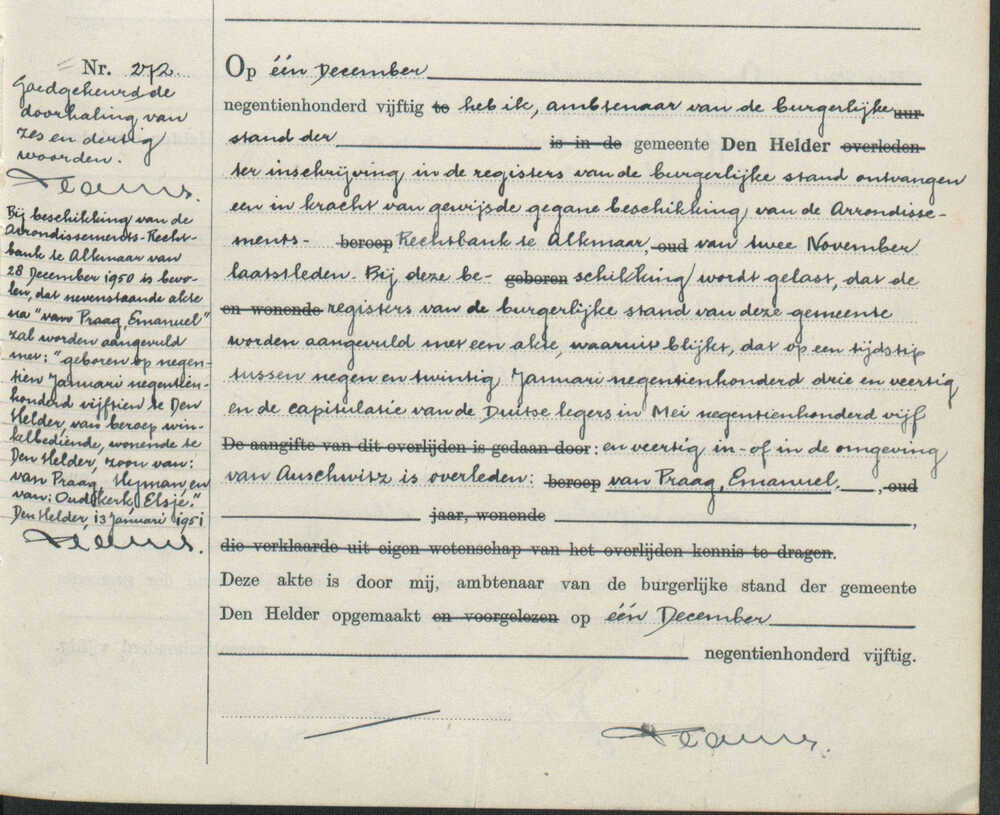 Nr. 272
Goedgekeurd de
doorhaling van
zes en dertig
woorden.
Bij beschikking van de
Arrondissements-Recht-
bank te Alkmaar van
28 December 1950 is bevo-
len, dat nevenstaande akte
na "van Praag, Emanuel"
zal worden aangevuld
met: "geboren op negen-
tien Januari negentien-
honderd vijftien te Den
Helder, van beroep win-
kelbediende, wonende te
Den Helder, zoon van:
van Praag, Hyman, en
van: Oudkerk, Elsje."
Den Helder, 13 Januari 1951
Op één December
negentienhonderd vijftig te heb ik, ambtenaar van de burgerlijke uur
stand der is in de gemeente Den Helder overleden
ter inschrijving in de registers van de burgerlijke stand ontvangen
een in kracht van gewijsde gegane beschikking van de Arrondisse-
ments- beroep Rechtbank te Alkmaar, oud van twee November
laatstleden. Bij deze be- geboren schikking wordt gelast, dat de
en wonende registers van de burgerlijke stand van deze gemeente
worden aangevuld met een akte, waaruit blijkt, dat op een tijdstip
tussen negen en twintig Januari negentienhonderd drie en veertig
en de capitulatie van de Duitse legers in Mei negentienhonderd vijf
De aangifte van dit overlijden is gedaan door: en veertig in- of in de omgeving
van Auschwitz is overleden: beroep van Praag, Emanuel. , oud
jaar, wonende ,
die verklaarde uit eigen wetenschap van het overlijden kennis te dragen.
Deze akte is door mij, ambtenaar van de burgerlijke stand der gemeente
Den Helder opgemaakt en voorgelezen op één December
negentienhonderd vijftig.